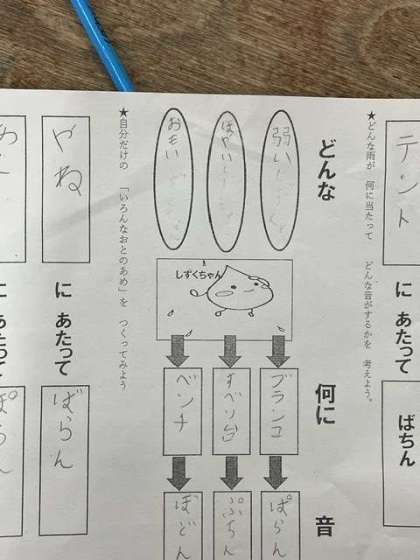 ★どんな雨が 何に当たって どんな音がするかを 考えよう。
テント
ばちん
どんな
何に
音
弱い
はやい
おもい
しずくちゃん
ブランコ
すべり台
ベンチ
ぱらん
ぷちん
ぼどん
★自分だけの 「いろんなおとのあめ」を つくってみよう
やね
に あたって
ばらん
に あたって